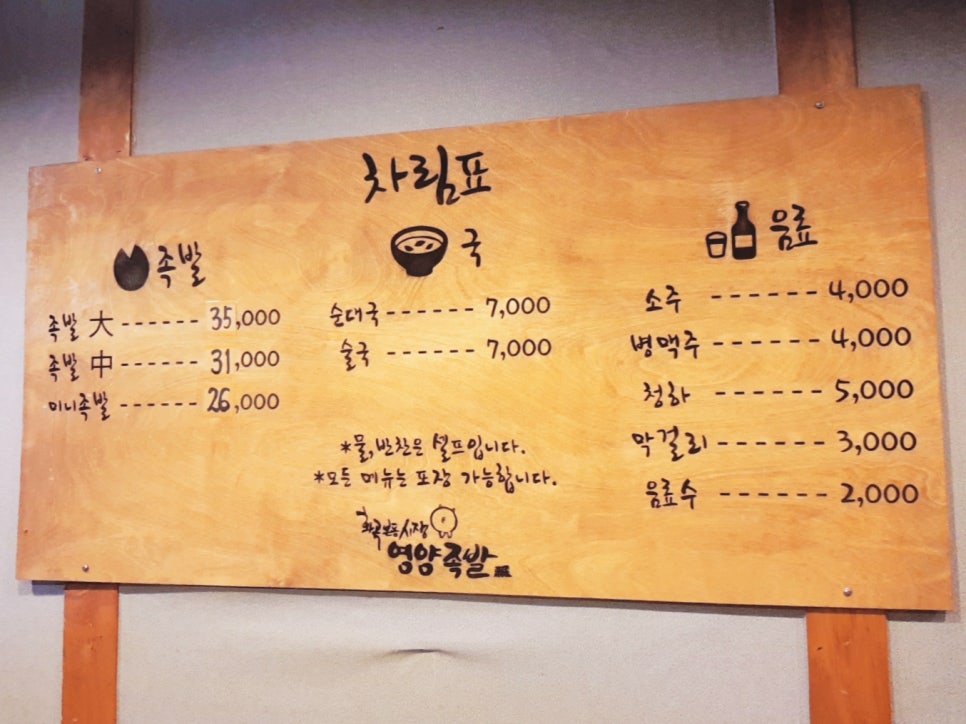 차림표
족발
족발 大 ------ 35,000
족발 中 ------ 31,000
미니족발 ------ 26,000
국
순대국 ------ 7,000
술국 ------- 7,000
*물, 반찬은 셀프입니다.
*모든 메뉴는 포장 가능합니다.
영양족발
음료
소주 ------ 4,000
병맥주 ------ 4,000
청하 ------ 5,000
막걸리 ------ 3,000
음료수 ------ 2,000